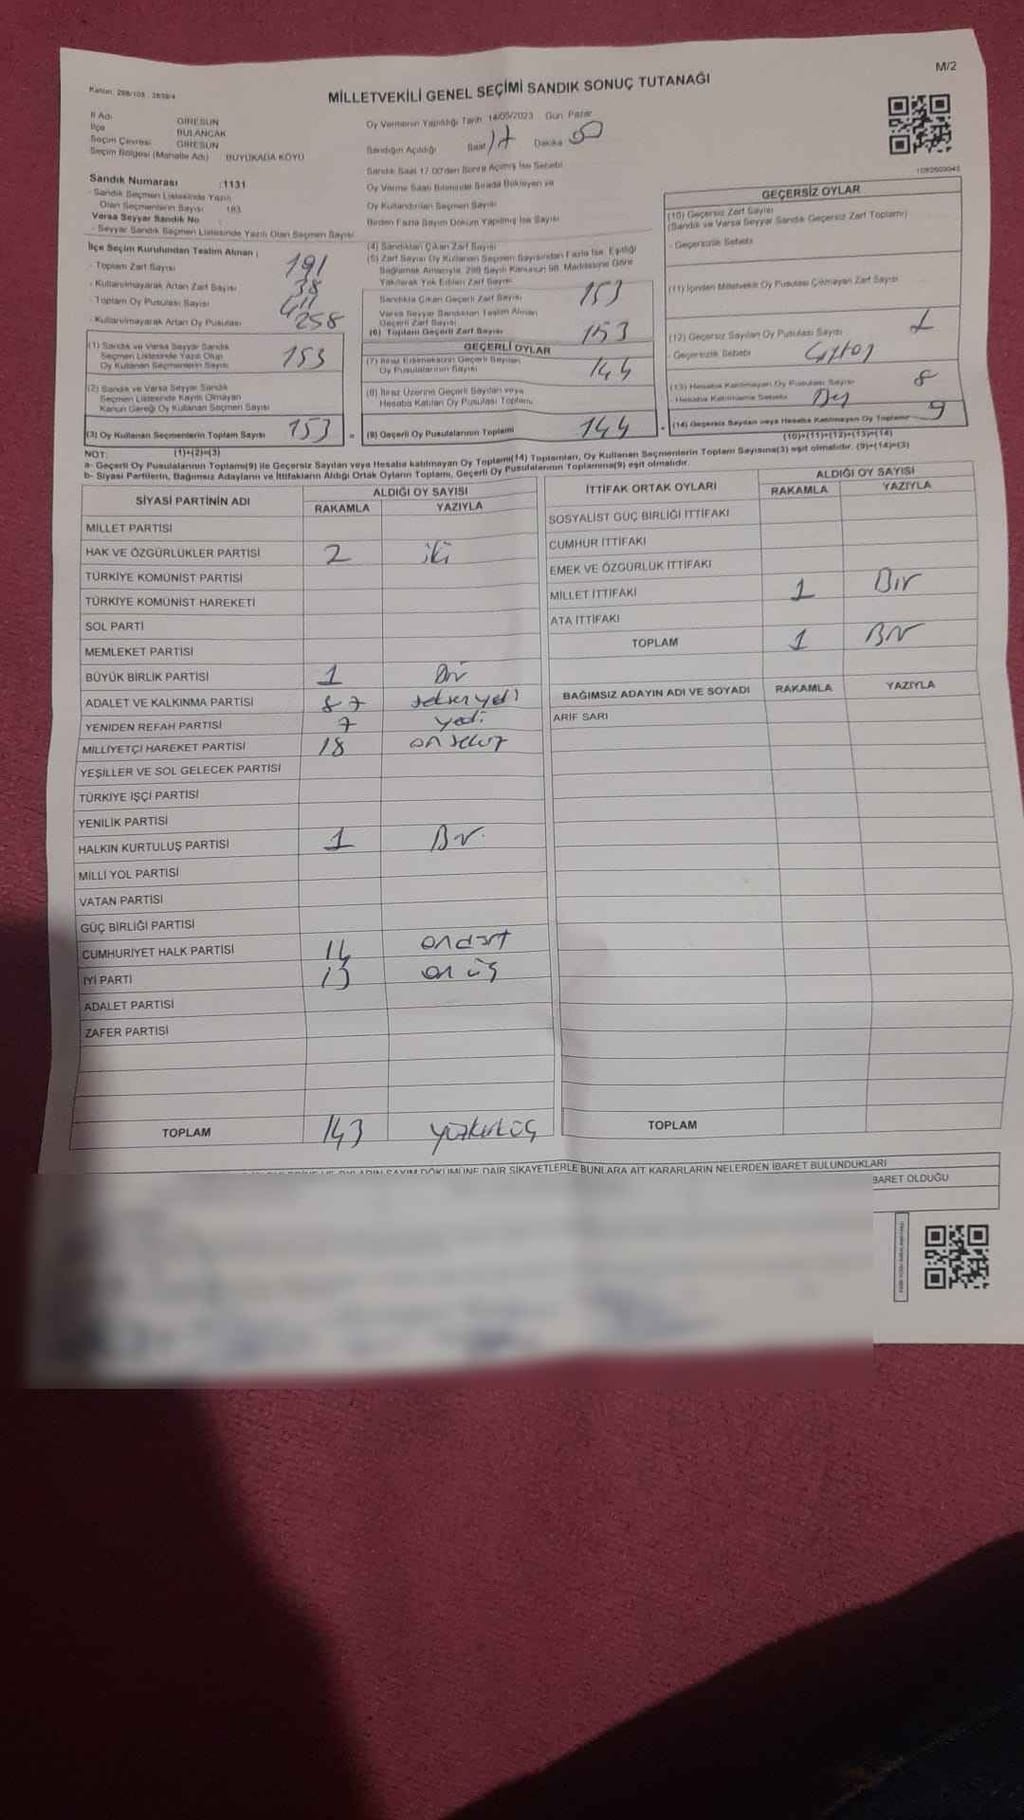 M/2
Kanun: 298/105 - 2839/4
MİLLETVEKİLİ GENEL SEÇİMİ SANDIK SONUÇ TUTANAĞI
İl Adı GİRESUN
İlçe BULANCAK
Seçim Çevresi GİRESUN
Seçim Bölgesi (Mahalle Adı) BÜYÜKADA KÖYÜ
Oy Vermenin Yapıldığı Tarih 14/05/2023 Gün Pazar
Sandığın Açıldığı Saat 17 Dakika 00
Sandık Saat 17.00'den Sonra Açılmış İse Sebebi
Oy Verme Saati Bitiminde Sırada Bekleyen ve
Oy Kullandırılan Seçmen Sayısı
Birden Fazla Sayım Döküm Yapılmış İse Sayısı
Sandık Numarası :1131
- Sandık Seçmen Listesinde Yazılı
Olan Seçmenlerin Sayısı 183
Varsa Seyyar Sandık No
- Seyyar Sandık Seçmen Listesinde Yazılı Olan Seçmen Sayısı
İlçe Seçim Kurulundan Teslim Alınan :
- Toplam Zarf Sayısı 191
- Kullanılmayarak Artan Zarf Sayısı 38
- Toplam Oy Pusulası Sayısı 411
- Kullanılmayarak Artan Oy Pusulası 258
(1) Sandık ve Varsa Seyyar Sandık
Seçmen Listesinde Yazılı Olup
Oy Kullanan Seçmenlerin Sayısı 153
(2) Sandık ve Varsa Seyyar Sandık
Seçmen Listesinde Kayıtlı Olmayan
Kanun Gereği Oy Kullanan Seçmen Sayısı
(3) Oy Kullanan Seçmenlerin Toplam Sayısı 153
(1)+(2)=(3)
(4) Sandıktan Çıkan Zarf Sayısı
(5) Zarf Sayısı Oy Kullanan Seçmen Sayısından Fazla İse, Eşitliği
Sağlamak Amacıyla, 298 Sayılı Kanunun 98. Maddesine Göre
Yakılarak Yok Edilen Zarf Sayısı
Sandıkta Çıkan Geçerli Zarf Sayısı 153
Varsa Seyyar Sandıktan Teslim Alınan
Geçerli Zarf Sayısı
(6) Toplam Geçerli Zarf Sayısı 153
GEÇERLİ OYLAR
(7) İtiraz Edilmeksizin Geçerli Sayılan
Oy Pusulalarının Sayısı 144
(8) İtiraz Üzerine Geçerli Sayılan veya
Hesaba Katılan Oy Pusulası Toplamı
(9) Geçerli Oy Pusulalarının Toplamı 144
GEÇERSİZ OYLAR
(10) Geçersiz Zarf Sayısı
(Sandık ve Varsa Seyyar Sandık Geçersiz Zarf Toplamı)
- Geçersizlik Sebebi
(11) İçinden Milletvekili Oy Pusulası Çıkmayan Zarf Sayısı
(12) Geçersiz Sayılan Oy Pusulası Sayısı 1
Geçersizlik Sebebi
(13) Hesaba Katılmayan Oy Pusulası Sayısı 8
- Hesaba Katılmama Sebebi
(14) Geçersiz Sayılan veya Hesaba Katılmayan Oy Toplamı 9
(10)+(11)+(12)+(13)=(14)
NOT:
a- Geçerli Oy Pusulalarının Toplamı(9) ile Geçersiz Sayılan veya Hesaba katılmayan Oy Toplamı(14) Toplamları, Oy Kullanan Seçmenlerin Toplam Sayısına(3) eşit olmalıdır. (9)+(14)=(3)
b- Siyasi Partilerin, Bağımsız Adayların ve İttifakların Aldığı Ortak Oyların Toplamı, Geçerli Oy Pusulalarının Toplamına(9) eşit olmalıdır.
SİYASİ PARTİNİN ADI ALDIĞI OY SAYISI
RAKAMLA YAZIYLA
MİLLET PARTİSİ
HAK VE ÖZGÜRLÜKLER PARTİSİ 2 iki
TÜRKİYE KOMÜNİST PARTİSİ
TÜRKİYE KOMÜNİST HAREKETİ
SOL PARTİ
MEMLEKET PARTİSİ
BÜYÜK BİRLİK PARTİSİ 1 Bir
ADALET VE KALKINMA PARTİSİ 87 seksenyedi
YENİDEN REFAH PARTİSİ 7 yedi
MİLLİYETÇİ HAREKET PARTİSİ 18 onsekiz
YEŞİLLER VE SOL GELECEK PARTİSİ
TÜRKİYE İŞÇİ PARTİSİ
YENİLİK PARTİSİ
HALKIN KURTULUŞ PARTİSİ 1 Bir
MİLLİ YOL PARTİSİ
VATAN PARTİSİ
GÜÇ BİRLİĞİ PARTİSİ
CUMHURİYET HALK PARTİSİ 14 ondört
İYİ PARTİ 13 on üç
ADALET PARTİSİ
ZAFER PARTİSİ
TOPLAM 143 yüzkırküç
İTTİFAK ORTAK OYLARI ALDIĞI OY SAYISI
RAKAMLA YAZIYLA
SOSYALİST GÜÇ BİRLİĞİ İTTİFAKI
CUMHUR İTTİFAKI
EMEK VE ÖZGÜRLÜK İTTİFAKI
MİLLET İTTİFAKI 1 Bir
ATA İTTİFAKI
TOPLAM 1 Bir
BAĞIMSIZ ADAYIN ADI VE SOYADI RAKAMLA YAZIYLA
ARİF SARI
TOPLAM
SAYIM DÖKÜMÜNE DAİR ŞİKAYETLERLE BUNLARA AİT KARARLARIN NELERDEN İBARET BULUNDUKLARI
BARET OLDUĞU